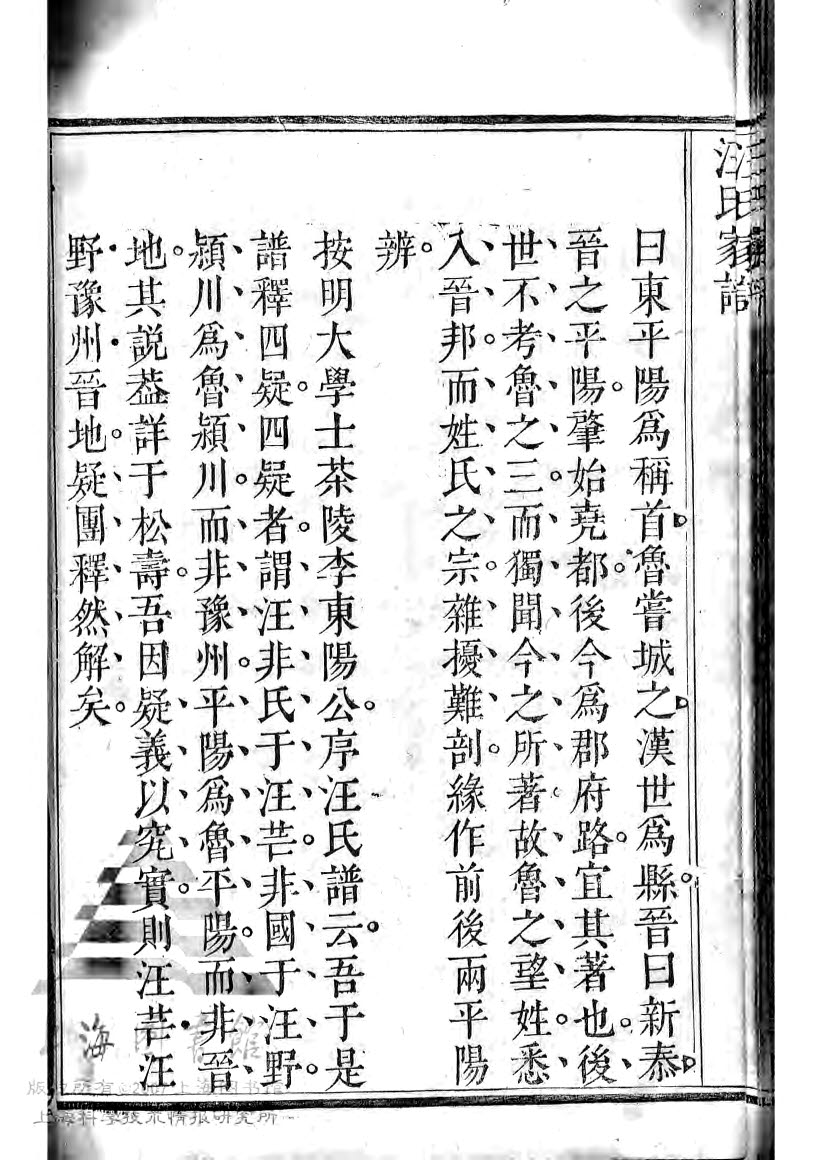 汪氏家譜
曰東平陽爲稱首魯嘗城之漢世爲縣晉曰新泰
晉之平陽。肇始堯都。後今爲郡府路。宜其著也。後
世不考魯之三。而獨聞今之所著。故魯之望姓。悉
入晉邦。而姓氏之宗。雜擾難剖。緣作前後兩平陽
辨。
按明大學士茶陵李東陽公。序汪氏譜云。吾于是
譜釋四疑。四疑者。謂汪非氏于汪芒。非國于汪野。
潁川爲魯潁川。而非豫州。平陽爲魯平陽。而非晉
地。其說葢詳于松壽。吾因疑義以究實。則汪芒汪
野豫州晉地。疑團釋然解矣。
版权所有©2007上海图书馆
上海科学技术情报研究所